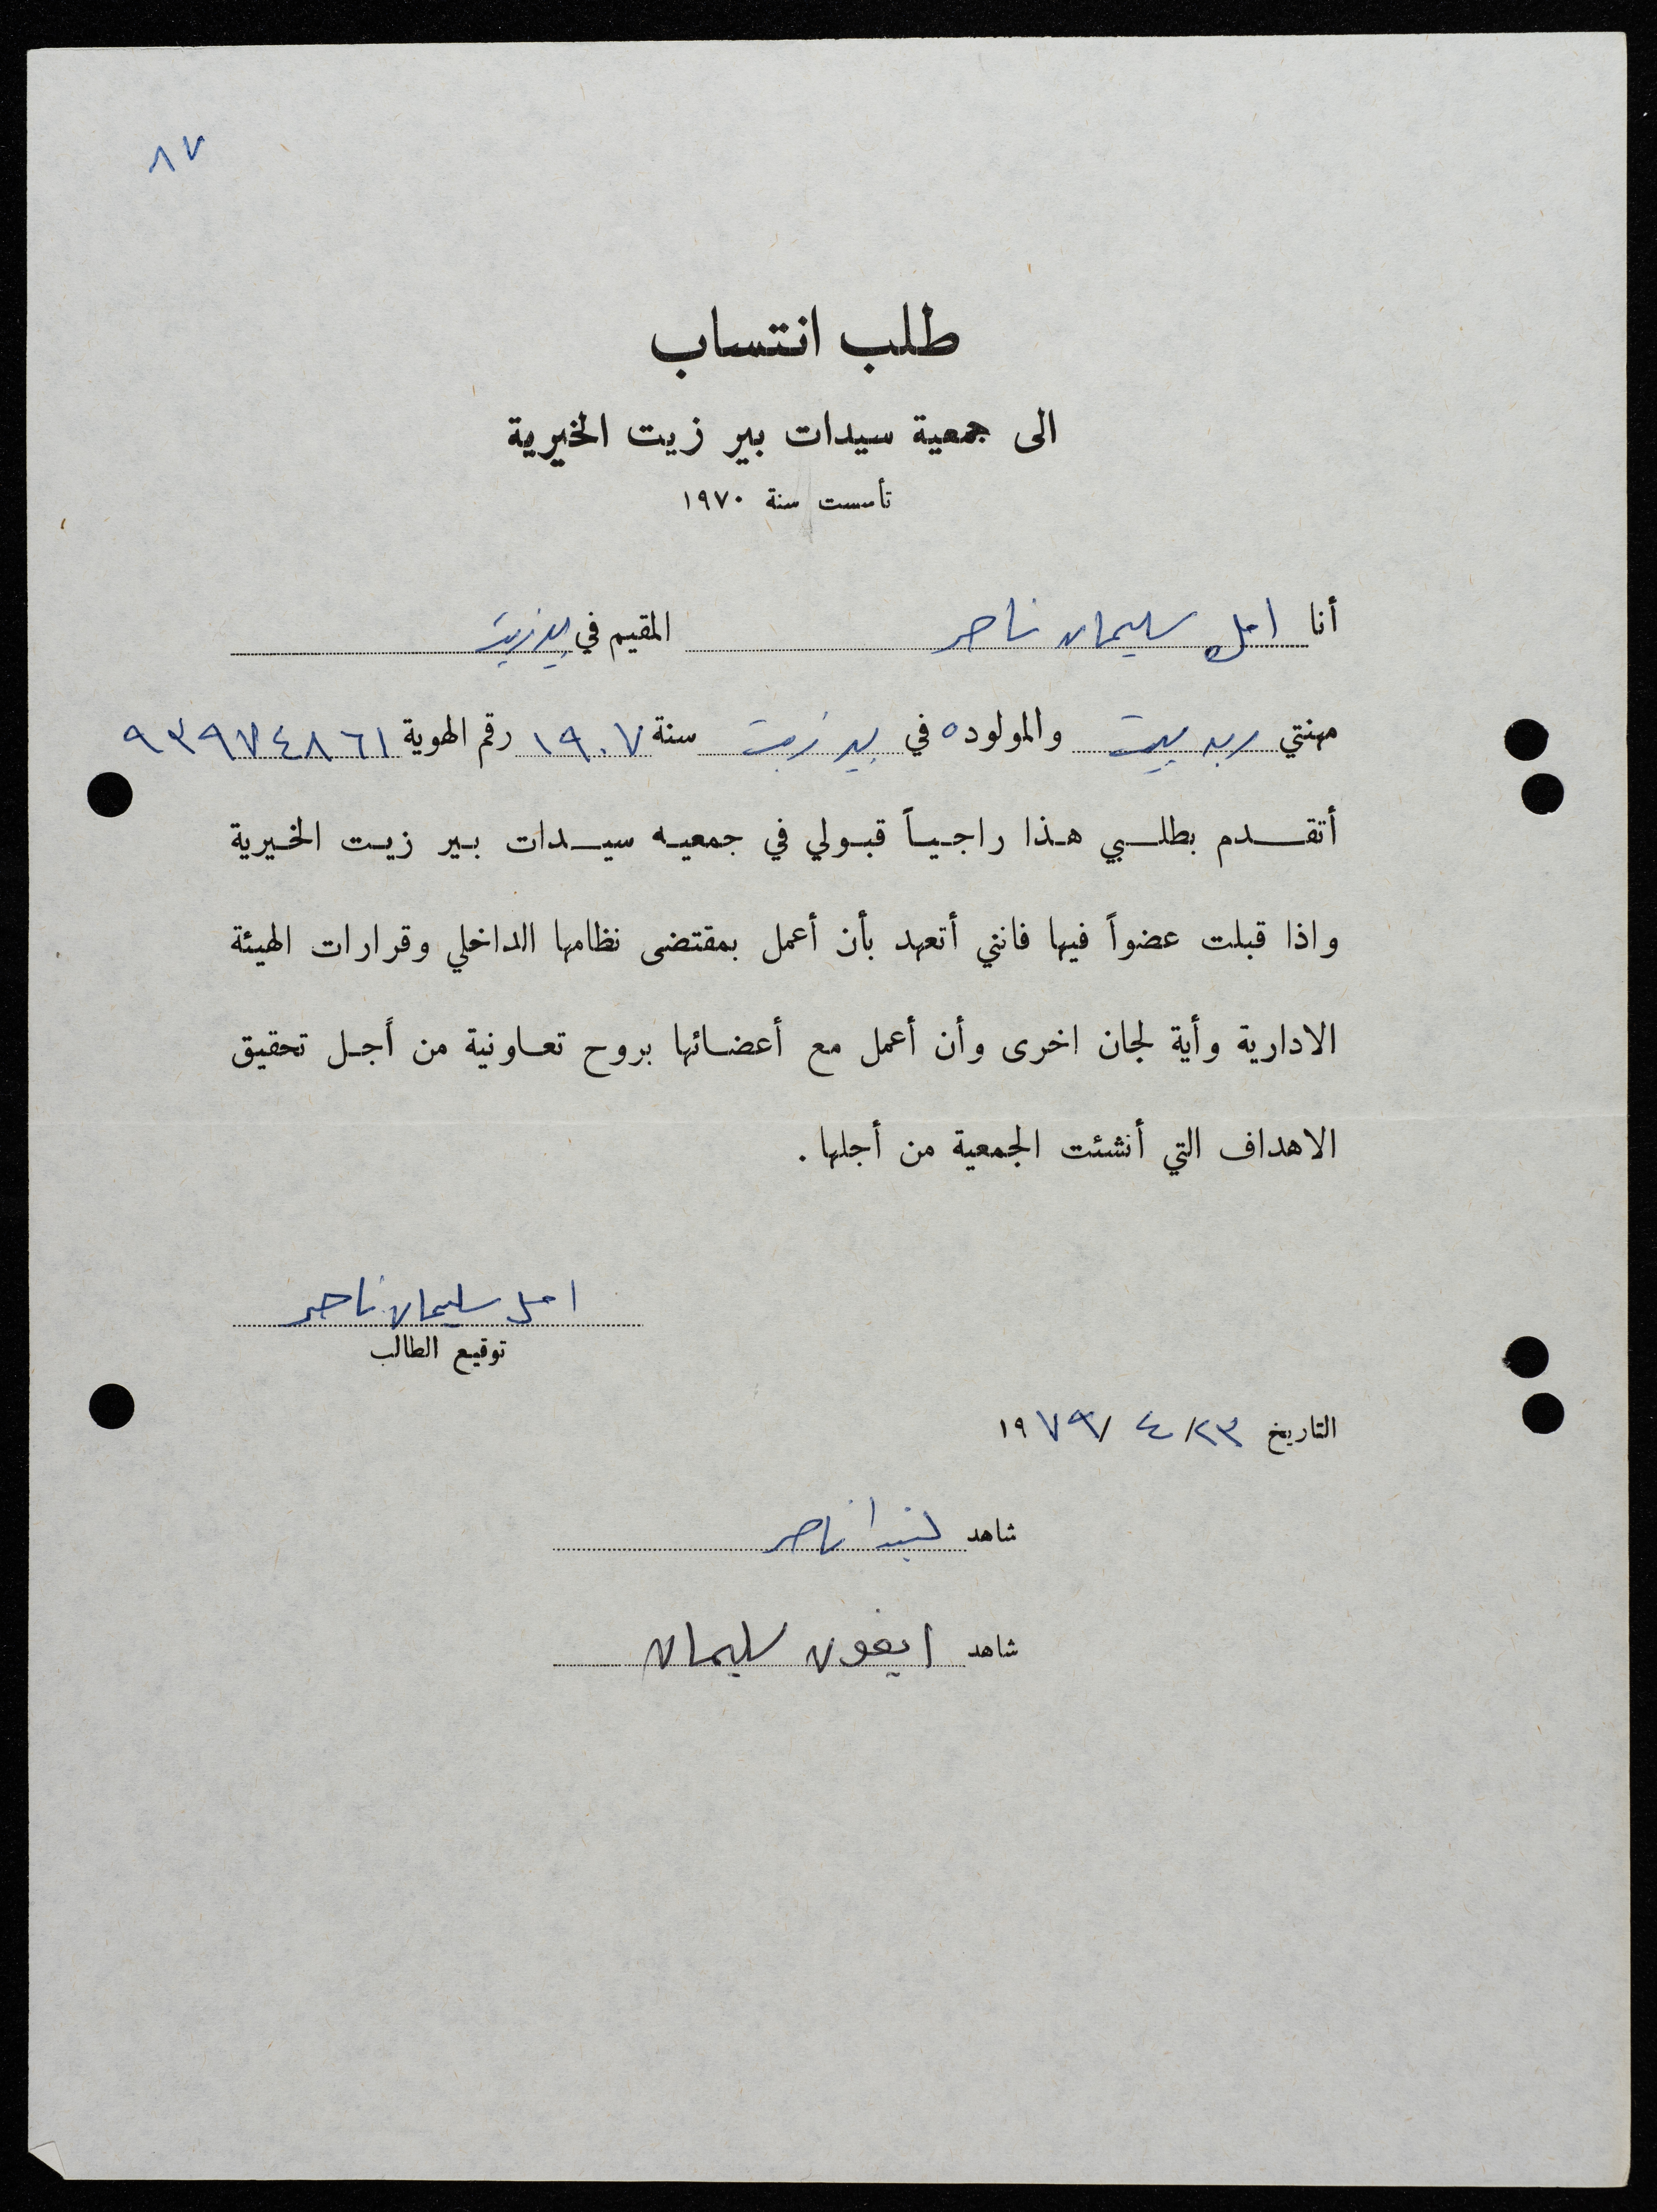 ٨٧
طلب انتساب
الى جمعية سيدات بير زيت الخيرية
تأسست سنة ١٩٧٠
أنا امل سليمان ناصر المقيم في بيرزيت
مهنتي ربه بيت والمولوده في بير زيت سنة ١٩٠٧ رقم الهوية ٩٣٩٧٤٨٦١
أتقدم بطلبي هذا راجياً قبولي في جمعيه سيدات بير زيت الخيرية
واذا قبلت عضواً فيها فانني أتعهد بأن أعمل بمقتضى نظامها الداخلي وقرارات الهيئة
الادارية وأية لجان اخرى وأن أعمل مع أعضائها بروح تعاونية من أجل تحقيق
الاهداف التي أنشئت الجمعية من أجلها .
امل سليمان ناصر
توقيع الطالب
التاريخ ٢٣/ ٤ /١٩٧٩
شاهد ناصر
شاهد ايفون سليمان